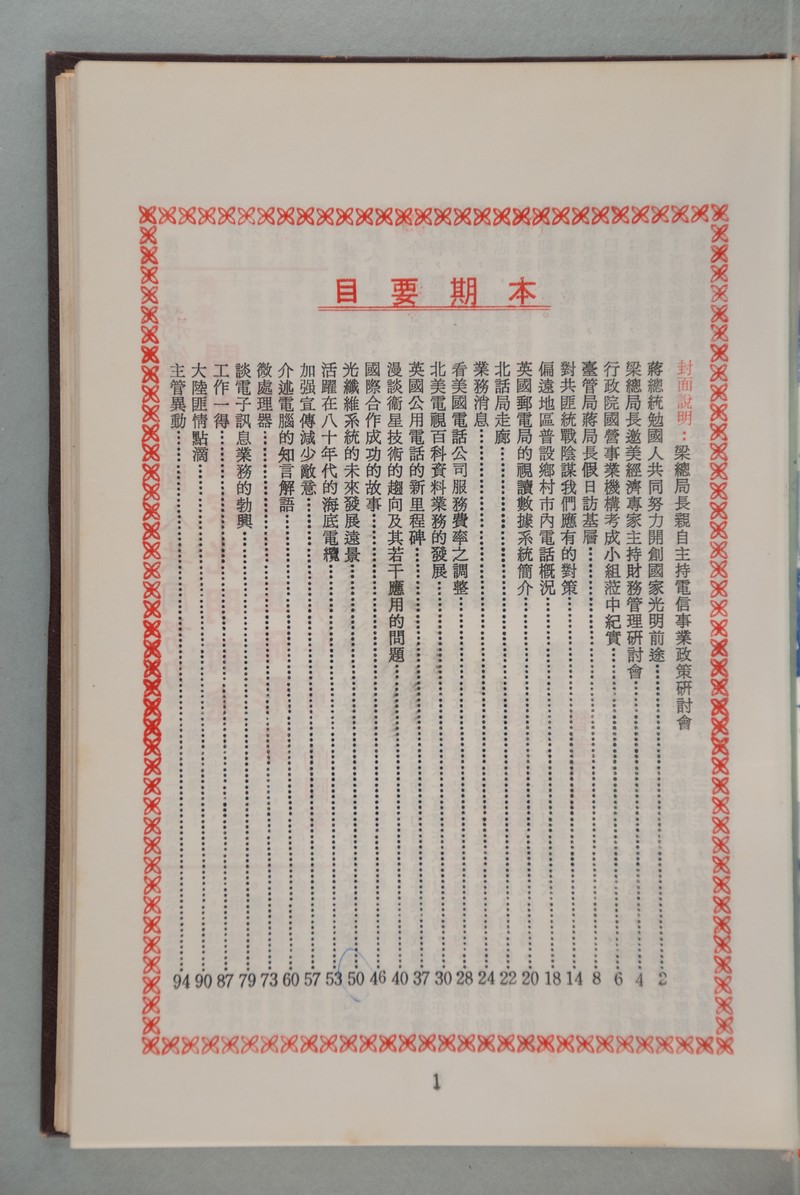 本期要目
封面說明：梁總局長親自主持電信事業政策研討會
蔣總統勉國人共同努力開創國家光明前途……2
梁總局長邀美經濟專家主持財務管理研討會……4
行政院國營事業機構考成小組蒞中紀實……6
臺管局蔣局長假日訪基層……8
對共匪統戰陰謀我們應有的對策……14
偏遠地區普設鄉村市內電話概況……18
英國郵電局的視讀數據系統簡介……20
北話局走廊……22
業務消息……24
看美國電話公司服務費率之調整……28
北美電視百科資料業務的發展……30
英國公用電話的新里程碑……37
漫談衛星技術的趨向及其若干應用的問題……40
國際合作成功的故事……46
光纖維系統的未來發展遠景……50
活躍在八十年代的海底電纜……53
加强宣傳減少敵意……57
介述電腦的知言解語……60
微處理器……73
談電子訊息業務的勃興……79
工作一得……87
大陸匪情點滴……90
主管異動……94
1